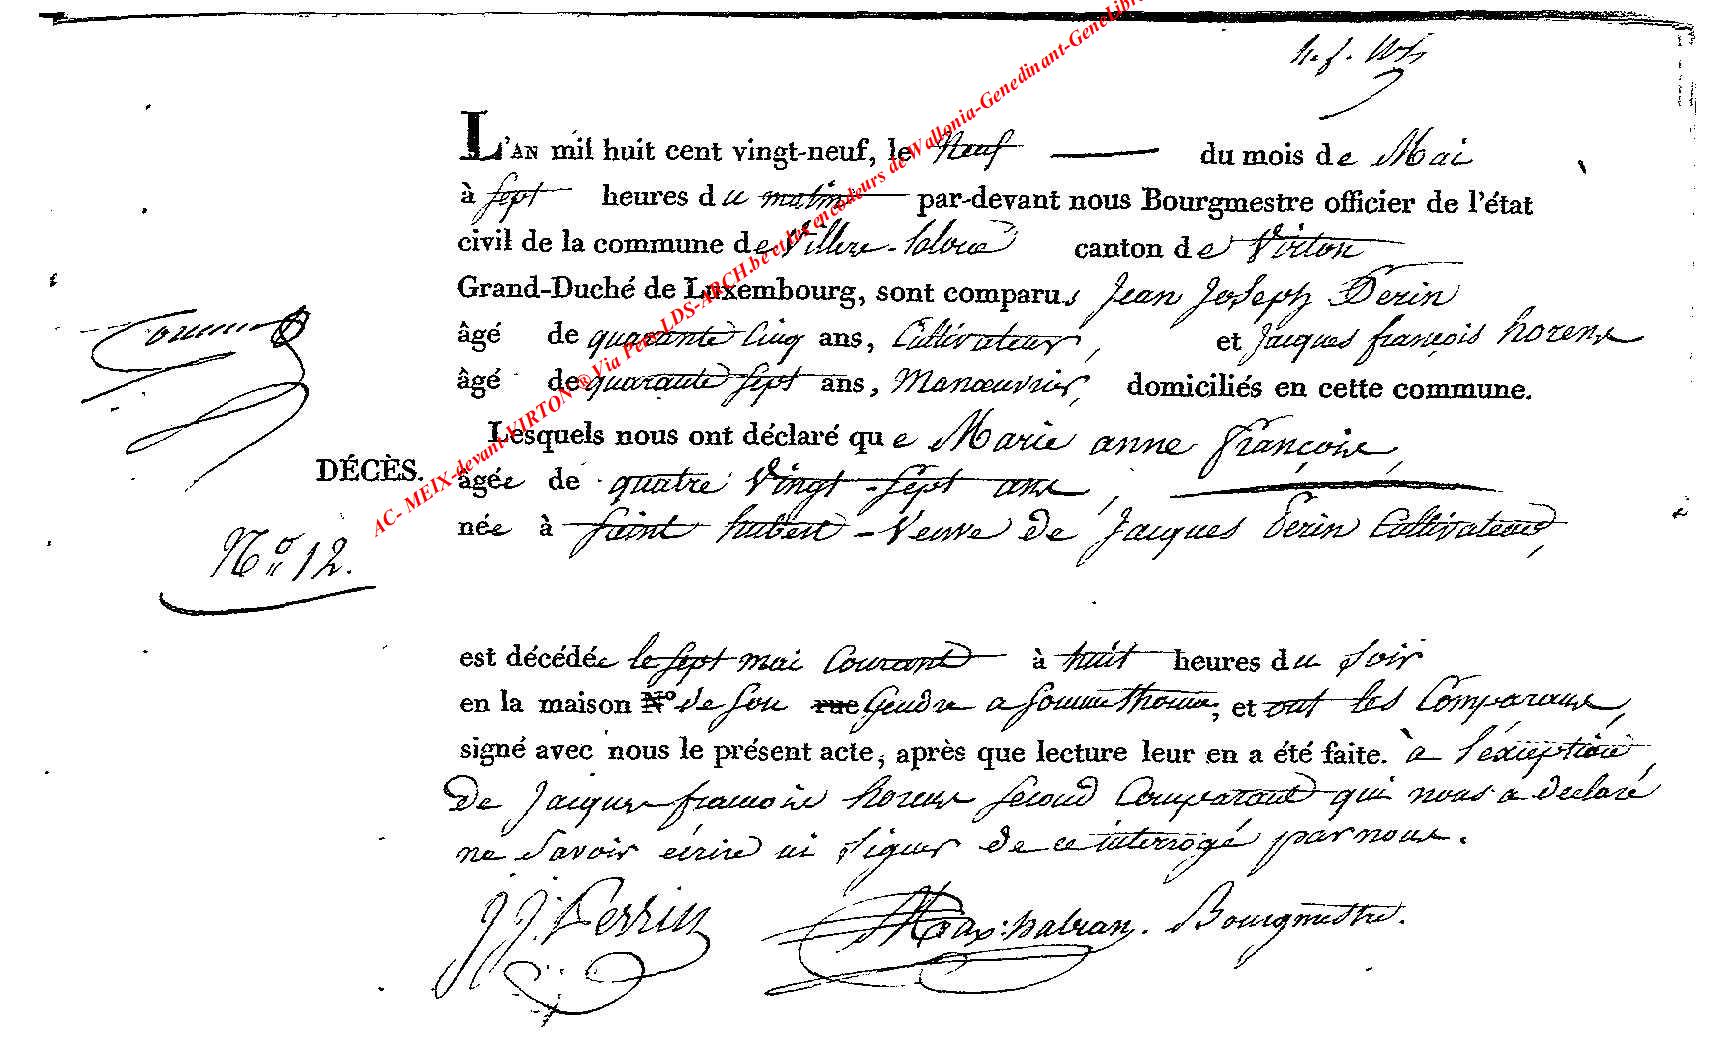 AC- MEIX-devant-VIRTON ® Via Pers-LDS-ARCH.be et les encodeurs de Wallonia-Genedinant-GeneLibr
L'AN mil huit cent vingt-neuf, le Neuf du mois de Mai
à sept heures du matin par-devant nous Bourgmestre officier de l'état
civil de la commune de Villers-laloue canton de Virton
Grand-Duché de Luxembourg, sont comparus Jean Joseph Perin
âgé de quarante Cinq ans, Cultivateur, et Jacques françois horens
âgé de quarante sept ans, Manœuvrier, domiciliés en cette commune.
Lesquels nous ont déclaré que Marie anne françoise,
DÉCÈS.
âgée de quatre Vingt-sept ans,
née à saint hubert - Veuve de Jacques Perin Cultivateur,
N.º 12.
est décédée le sept mai Courant à huit heures du soir
en la maison N° de son rue Gendre a sommethonne, et ont les Comparans,
signé avec nous le présent acte, après que lecture leur en a été faite. à l'exception
de Jacques françois horens second Comparant qui nous a declaré
ne savoir écrire ni signer de ce interrogé par nous.
J J. Perrin Bourgmestre.